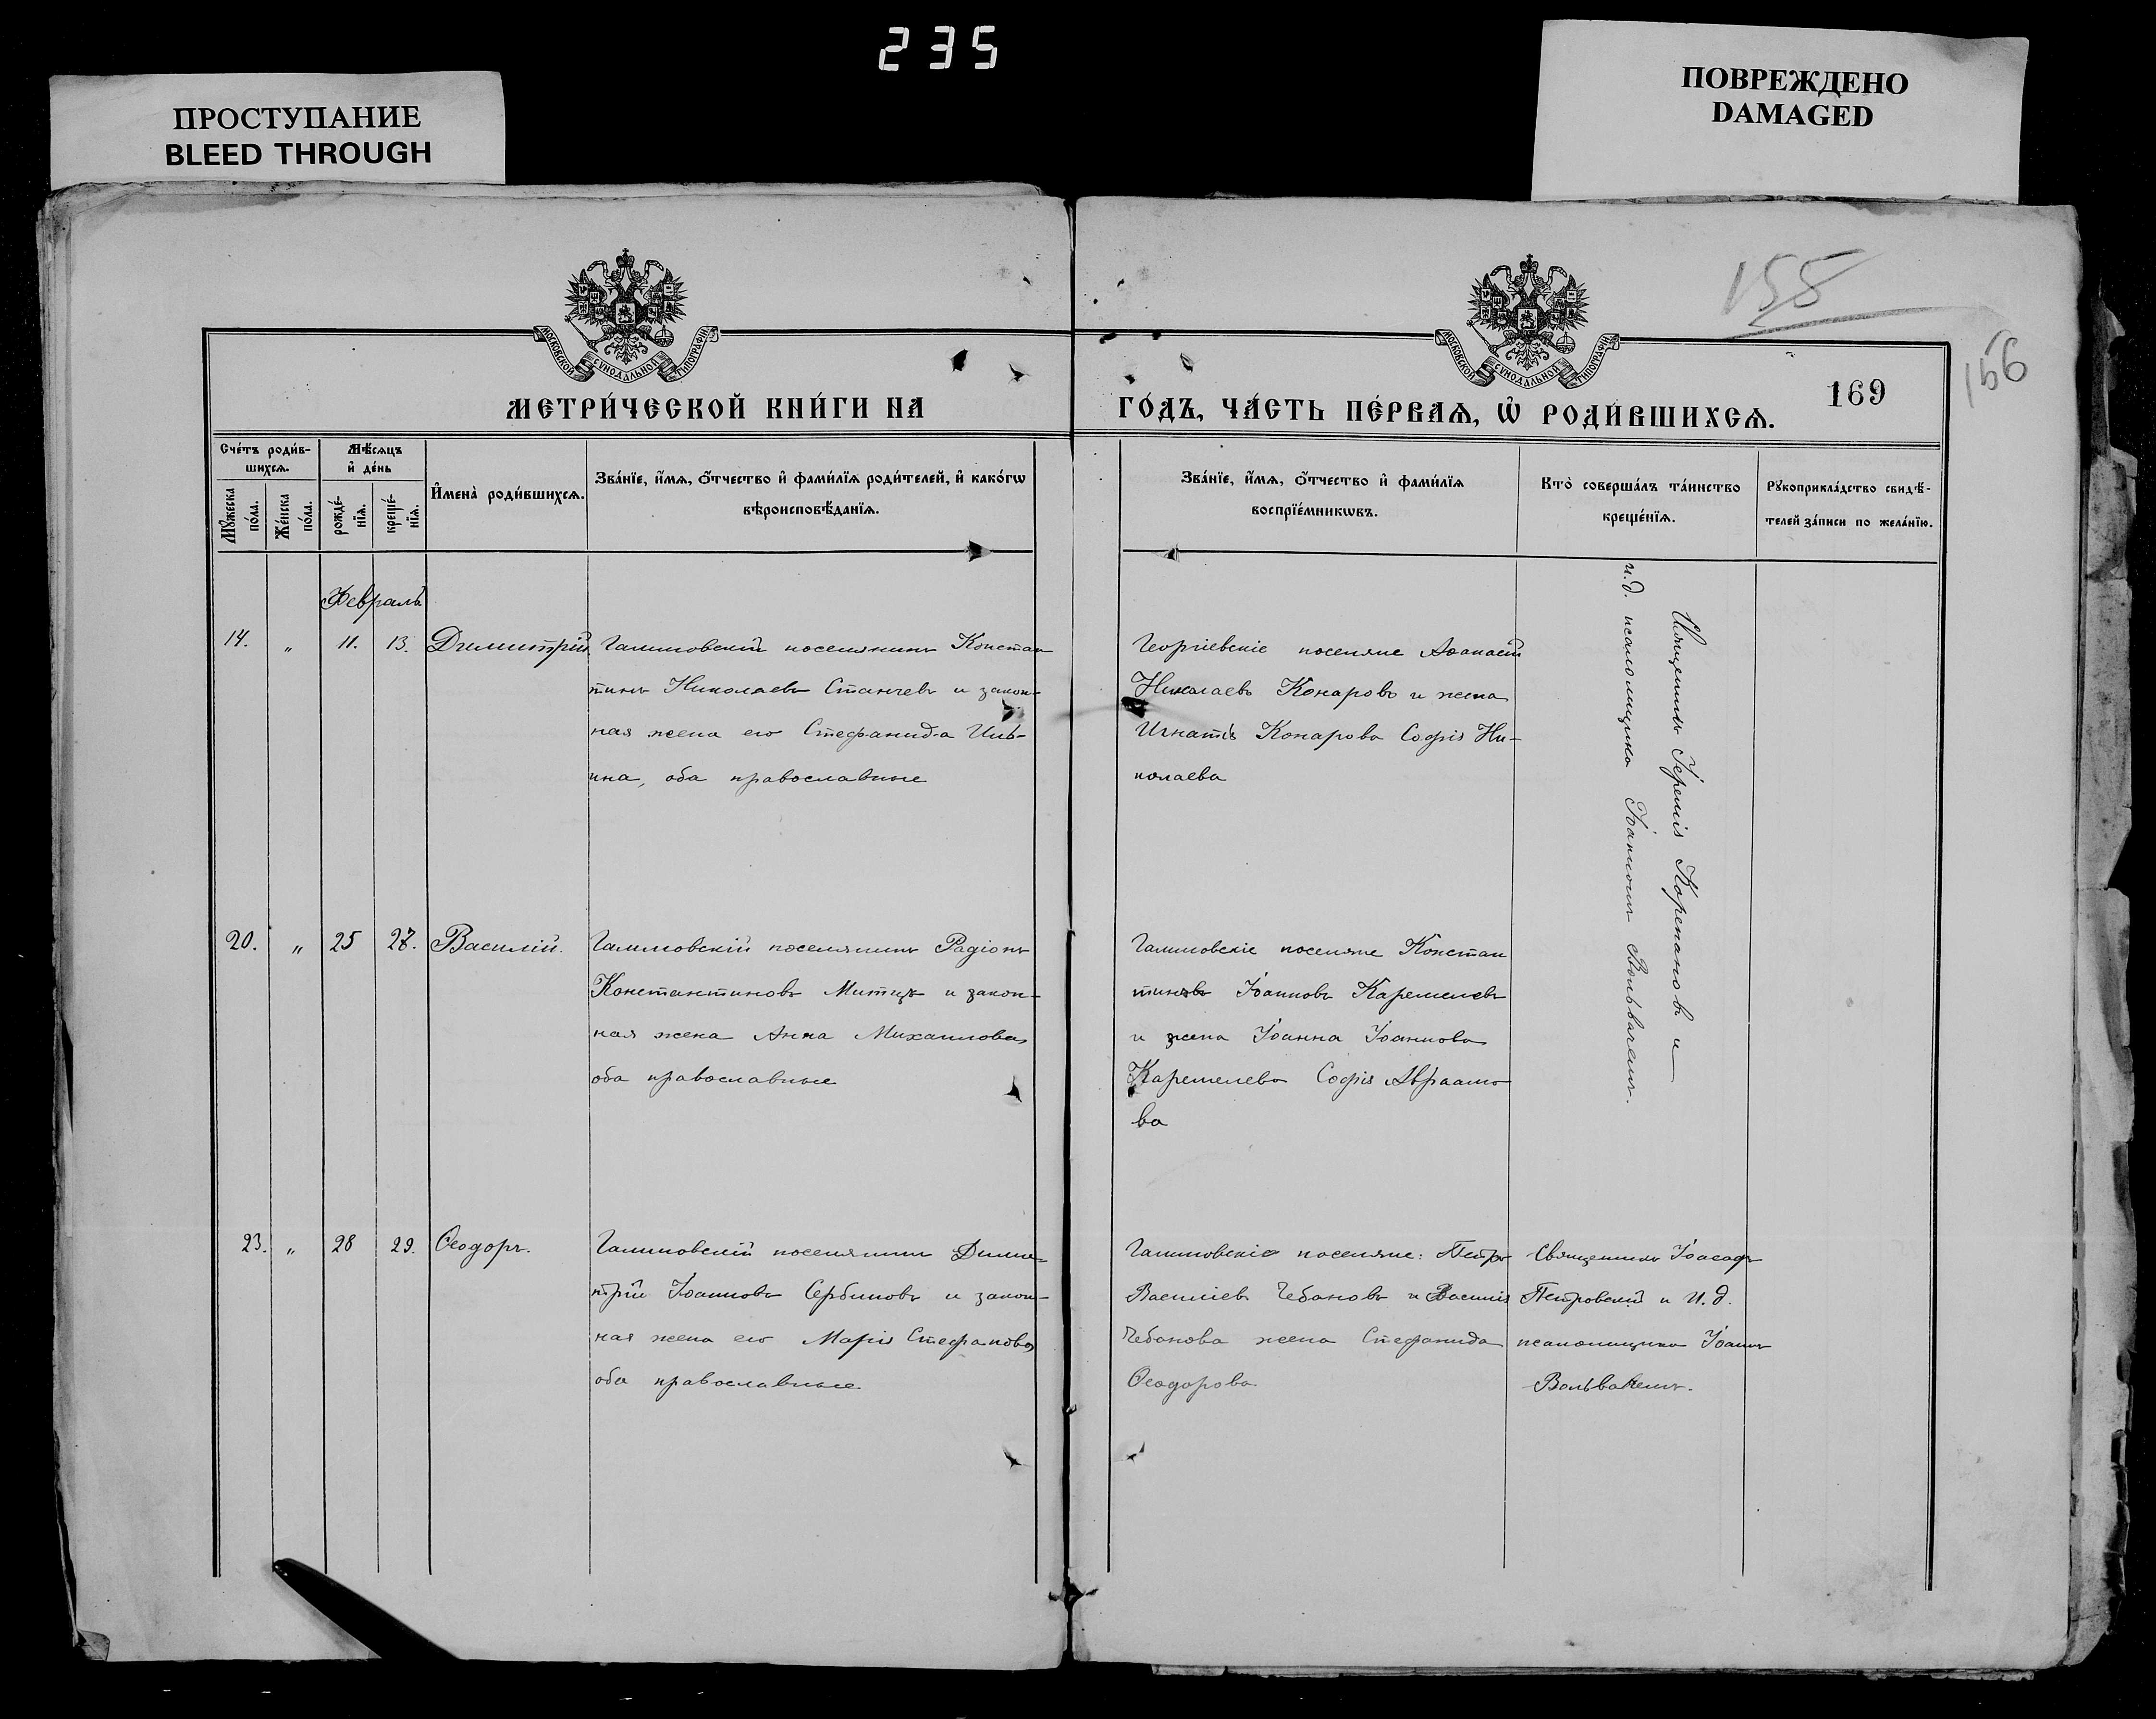 235
ПРОСТУПАНИЕ
BLEED THROUGH
ПОВРЕЖДЕНО
DAMAGED
155
156
169
МОСКОВСКОЙ СѴНОДАЛЬНОЙ ТИПОГРАФІИ
МОСКОВСКОЙ СѴНОДАЛЬНОЙ ТИПОГРАФІИ
МЕТРИ́ЧЕСКОЙ КНИ́ГИ НА
ГО́ДЪ, ЧА́СТЬ ПЕ́РВАѦ, Ѡ҆ РОДИ́ВШИХСѦ.
Сче́тъ роди́в-
шихсѧ.
Мꙋ́жеска по́ла.
Же́нска по́ла.
Мѣ́сѧцъ
и҆ де́нь
рожде́-
нїѧ.
креще́-
нїѧ.
И҆мена̀ роди́вшихсѧ.
Зва́нїе, и҆́мѧ, ѻ҆́тчество и҆ фами́лїѧ роди́телей, и҆ како́гѡ
вѣроисповѣ́данїѧ.
Зва́нїе, и҆́мѧ, ѻ҆́тчество и҆ фами́лїѧ
воспрїе́мникѡвъ.
Кто̀ соверша́лъ та́инство
креще́нїѧ.
Рꙋкоприкла́дство свидѣ́-
телей за́писи по жела́нїю.
Февраль
14. " 11. 13. Димитрій
Галиловскій поселянинъ Констан
тинъ Николаевъ Станчевъ и закон-
ная жена его Стефанида Иль-
ина, оба православные
Георгіевскіе поселяне Аѳанасій
Николаевъ Конаровъ и жена
Игнатія Конарова Софія Ни-
колаева
Священникъ Іеремія Корепановъ и
и.д. псаломщика Іоакимъ
20. " 25 27. Василій.
поселянинъ Радіонъ
Константиновъ Митицъ и закон-
ная жена Анна Михаилова
оба православные
поселяне Констан
тиновъ Іоанновъ
и жена Іоанна Іоаннова
Софія Авраамо
ва
23. " 28 29. Ѳеодоръ.
поселянинъ Дими-
трій Іоанновъ Сербиновъ и закон-
ная жена его Марія Стефанова
оба православные
поселяне: Петръ
Василіевъ Чебановъ и Василія
Чебанова жена Стефанида
Ѳеодорова
Священникъ Іоасафъ
Петровскій и И.д.
псаломщика Іоаннъ